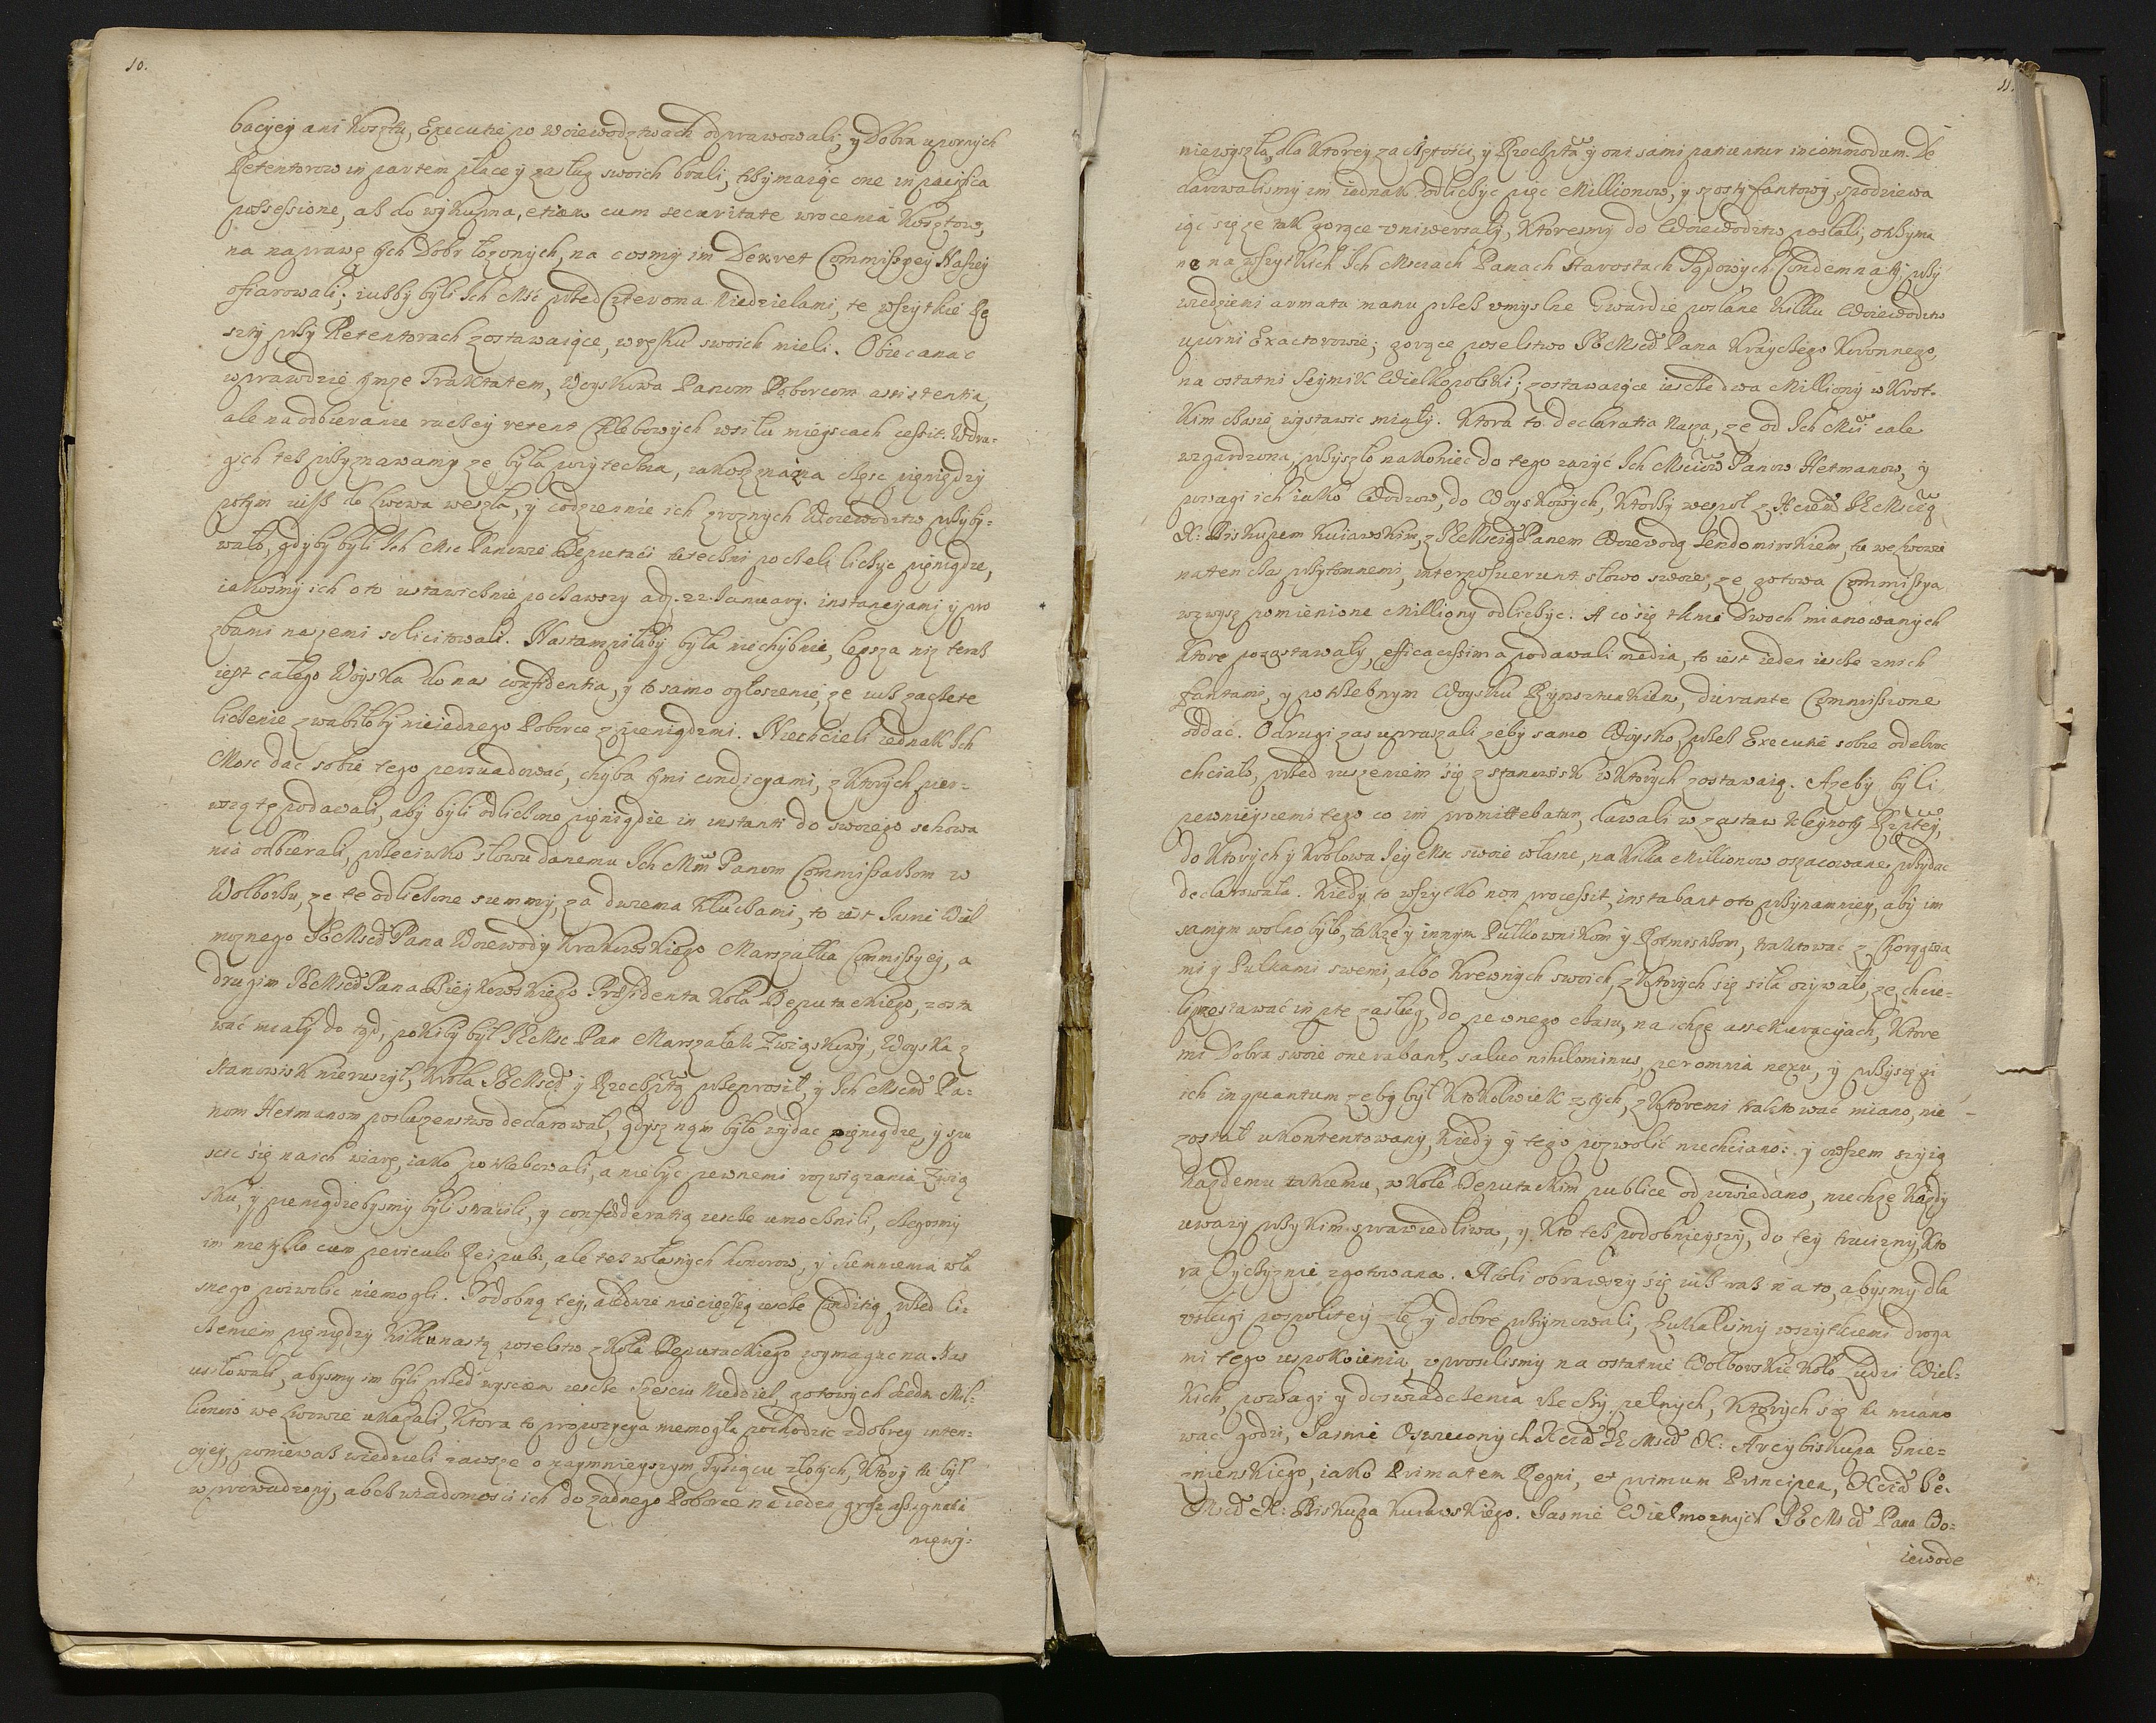 10.
bacyey ani kosztu, Executię po Woiewodztwach odprawowali, y Dobra upornych
Retentorow in partem płace y zasług swoich brali, trzymaiąc one in pacifica
possessione, aż do wykupna, etiam cum securitate wrocenia kosztow,
na naprawę tych Dobr łożonych, na cosmy im Dekret Commissyey Naszey
ofiarowali; iużby byli Ich Mść przed Czterema Niedzielami, te wszytkie Re
szty przy Retentorach zostawaiące, w ręku swoich mieli. Obiecanać
wprawdzie tymże Traktatem, Woyskowa Panom Poborcom assistentia,
ale na odbieranie raczey retent Chlebowych w siłu mieyscach cessit. W dru=
gich też przyznawamy że była pożyteczna, iakosz znaczna część pieniędzy
potym iusz do Lwowa weszła, y codziennie ich z roznych Woiewodztw przyby=
wało, gdyby byli Ich Mść Panowie Deputaci trzechni poczeli liczyć pieniądze,
iakosmy ich o to ustawicznie począwszy a d. 22. January. instancyami y pro
zbami naszemi solicitowali. Nastąmpiłaby była niechybnie, lepsza niz teraz
iest całego Woyska do nas confidentia, y to samo ogłoszenie, że iusz zaczęte
liczenie zwabiłoby nieiednego Poborce z pieniądzmi. Niechcieli iednak Ich
Mość dać sobie tego perswadować, chyba tymi condicyami, z ktorych pier=
wszą tę podawali, aby byli odliczone pieniądze in instanti do swoiego schowa
nia odbierali, przeciwko słowu danemu Ich Mm Panom Commissarzom w
Wolborzu, że te odliczone summy, za dwiema kluczami, to iest Iasnie Wiel
możnego JEMści Pana Woiewody Krakowskiego Marszałka Commissyey, a
drugim JEMści Pana Præsidenta Koła Deputackiego, zosta
wać miały do tąd, pokiby był JEMść Pan Marszałek Związkowy, Woyska z
Stanowisk nieruszył, Krola JEMści y Rzeczptą przeprosił, y Ich Mściom Pa=
nom Hetmanom posłuszenstwo declarował, gdysz nam było wydać pieniądze, y spu
scić się na ich wiarę, iako potrzebowali, a niebyć pewnemi rozwiązania Związ
ku, y pieniądzebysmy byli stracili, y confœderatią ieszcze umocnili, czegosmy
im nietylko cum periculo Reipub:, ale też własnych honorow, y sumnienia wła
snego pozwolić niemogli. Podobną tey, a ledwie nie cięższą ieszcze Conditią, przed li=
czeniem pieniędzy kilkunastą poselstw z Koła Deputackiego wymagac na Nas
usiłowali, abysmy im byli przed wysciem ieszcze szesciu Niedziel, gotowych siedm Mil=
lionow we Lwowie ukazali, ktora to propozycya niemogła pochodzić z dobrey inten=
cyey, ponieważ wiedzieli zawsze o naymnieyszym Tysiącu złotych, ktory tu był
wprowadzony, a bez wiadomosci ich do żadnego Poborce na ieden grosz assignatia
niewy=
11.
niewyszła, dla ktorey zaciętości, y Rzeczpta y oni sami patiuntur incommodum. De
clarowalismy im iednak odliczyć pięć Millionow, y szosty fantowy, spodziewa
iąc się że tak gorące uniwersały, ktoresmy do Woiewodztw posłali, otrzyma
ne na wszytkich Ich Mściach Panach Starostach Sądowych Condemnaty, przy
wiedzieni armata manu przez umyslne Gwardie posłane kilku Woiewodztw
uporni Exactorowie; gorące poselstwo JEMści Pana Krayczego Koronnego,
na ostatni Seymik Wielkopolski; zostawaiące ieszcze dwa Milliony w krot=
kim czasie wystawić miały. Ktora to declaratia nasza, że od Ich Mciow cale
wzgardzona, przyszło nakoniec do tego zażyć Ich Mściow Panow Hetmanow, y
powagi ich iako Wodzow, do Woyskowych, ktorzy wespoł z JEMścią
X: Biskupem Kuiawskim, z JEMścią Panem Woiewodą Sendomirskiem, tu we Lwowie
natenczas przytomnemi, interposuerunt słowo swoie, że gotowa Commissya
wzwysz pomienione Milliony odliczyć. A co się tknie dwoch mianowanych
ktore pozostawały, efficacissima podawali media, to iest ieden ieszcze znich
fantami, y potrzebnym Woysku Rynsztunkiem, durante Commissione
oddać. O drugi zas upraszali żeby samo Woysko, przez Executię sobie odebrać
chciało, przed ruszeniem się z stanowisk w ktorych zostawaią. A żeby byli
pewnieyszemi tego co im promittebatur, dawali w zastaw kleynoty Rzptey,
do ktorych y Krolowa Jey Mść swoie własne, na kilka Millionow oszacowane, przydać
declarowała. Kiedy to wszytko non processit, instabant o to przynamniey, aby im
samym wolno było, także y innym Pułkownikom y Rotmistrzom, traktować z Chorągwia
mi y Pułkami swemi, albo krewnych swoich, z ktorych się siła ozywało, że chcie=
li przestawać in pte zasług, do pewnego czasu, na ichże assekuracyach, ktore
mi Dobra swoie onerabant, salvo nihilominus, per omnia nexu, y przysięgi
ich inquantum żeby był ktokolwiek z tych, z ktoremi traktować miano, nie
został ukontentowany, kiedy y tego pozwolić niechciano: y owszem szyią
każdemu takiemu, w Kole Deputackim publice odpowiedano, niechże każdy
uważy przy kim sprawiedliwa, y kto też podobnieyszy, do tey trucizny, kto
ra Oyczyznie zgotowana. A iżeli obrawszy się iuż raz na to, abysmy dla
usługi pospolitey złe y dobre przymowali, szukalismy wszytkiemi droga
mi tego uspokoienia, uprosilismy na ostatnie Wolborskie Koło Ludzi Wiel=
kich, powagi y doswiadczenia rzeczy pełnych, ktorych się tu miano
wać godzi, Jasnie Oswieconych JEMści X: Arcybiskupa Gnie=
znienskiego, iako Primatem Regni, et primum Principem, JE=
Mści X: Biskupa Kuiawskiego. Jasnie Wielmożnych JEMści Pana Wo=
iewode